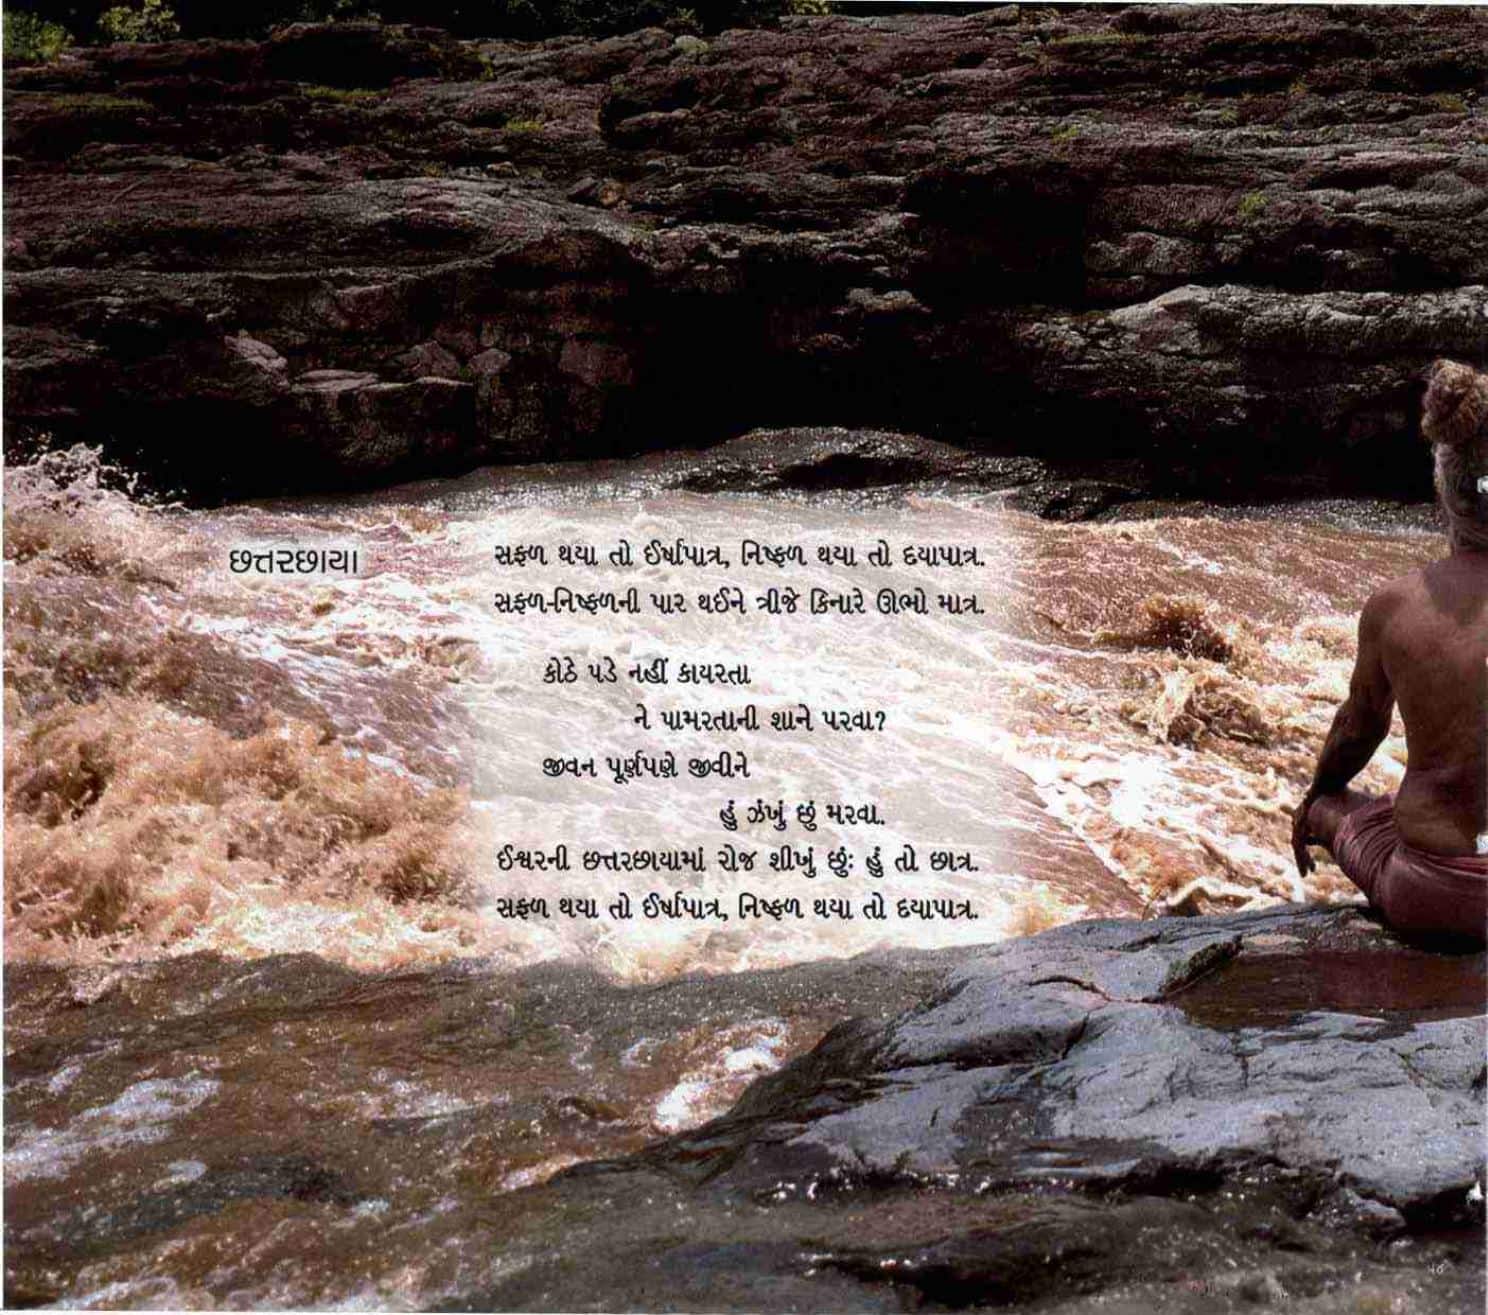 છત્તરછાયા
સફળ થયા તો ઈર્ષાપાત્ર, નિષ્ફળ થયા તો દયાપાત્ર.
સફળ-નિષ્ફળની પાર થઈને ત્રીજે કિનારે ઊભો માત્ર.
કોઠે પડે નહીં કાયરતા
ને પામરતાની શાને પરવા?
જીવન પૂર્ણપણે જીવીને
હું ઝંખું છું મરવા.
ઈશ્વરની છત્તરછાયામાં રોજ શીખું છુંઃ હું તો છાત્ર.
સફળ થયા તો ઈર્ષાપાત્ર, નિષ્ફળ થયા તો દયાપાત્ર.